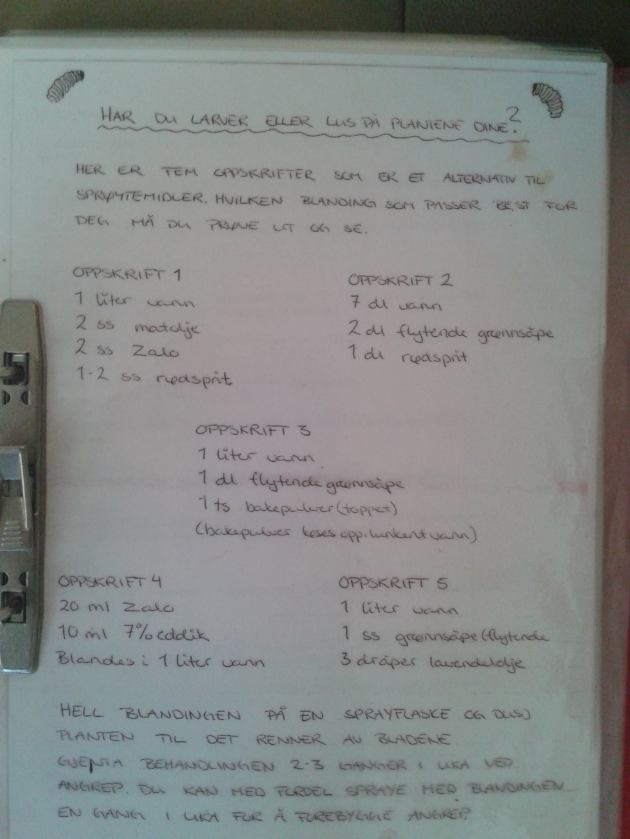 HAR DU LARVER ELLER LUS PÅ PLANTENE DINE?
HER ER FEM OPPSKRIFTER SOM ER ET ALTERNATIV TIL
SPRØYTEMIDLER. HVILKEN BLANDING SOM PASSER BEST FOR
DEG MÅ DU PRØVE UT OG SE.
OPPSKRIFT 1
1 liter vann
2 ss matolje
2 ss Zalo
1-2 ss rødsprit
OPPSKRIFT 2
7 dl vann
2 dl flytende grønnsåpe
1 dl rødsprit
OPPSKRIFT 3
1 liter vann
1 dl flytende grønnsåpe
1 ts bakepulver (toppet)
(bakepulver løses opp i lunkent vann)
OPPSKRIFT 4
20 ml Zalo
10 ml 7% eddik
Blandes i 1 liter vann
OPPSKRIFT 5
1 liter vann
1 ss grønnsåpe (flytende
3 dråper lavendelolje
HELL BLANDINGEN PÅ EN SPRAYFLASKE OG DUSJ
PLANTEN TIL DET RENNER AV BLADENE.
GJENTA BEHANDLINGEN 2-3 GANGER I UKA VED
ANGREP. DU KAN MED FORDEL SPRAYE MED BLANDINGEN
EN GANG I UKA FOR Å FOREBYGGE ANGREP